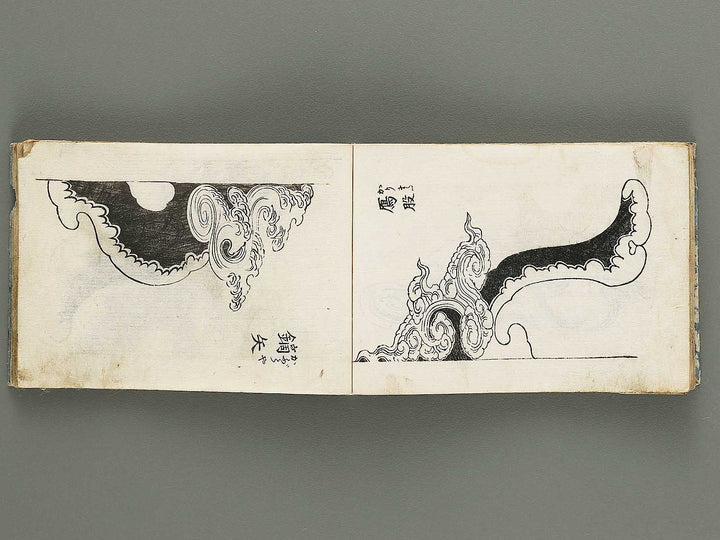 雁股
かりまた
鏑矢
かぶらや